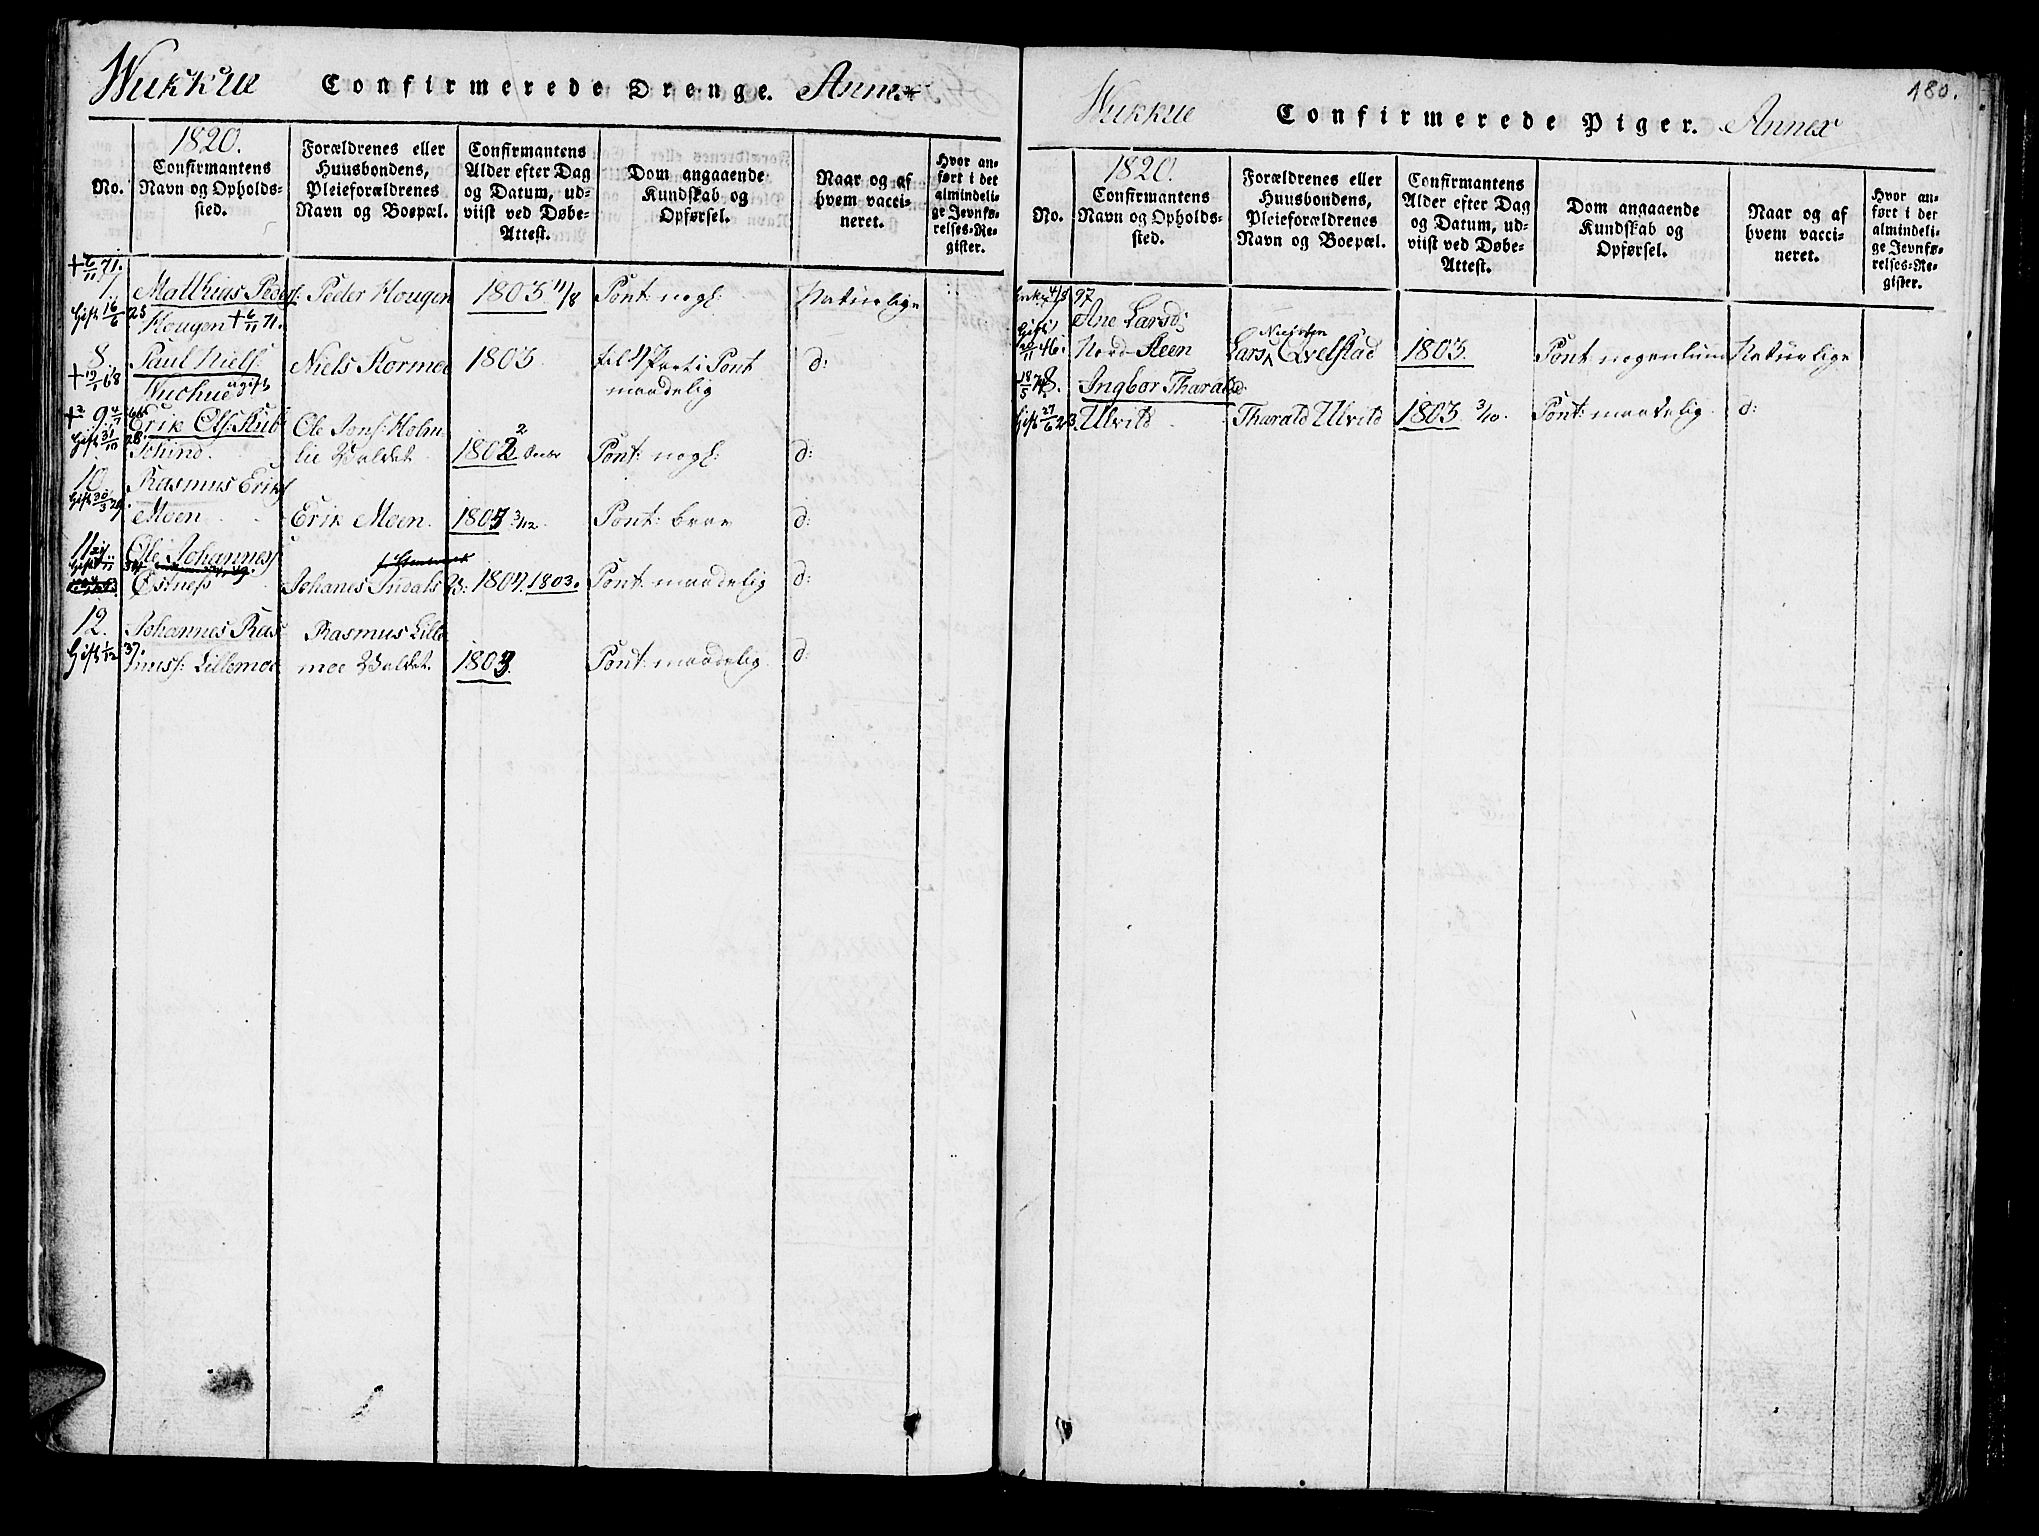 Wukkue Confirmerede Drenge. Annex
1820.
No.
Confirmantens Navn og Opholds-sted.
Forældrenes eller Huusbondens, Pleieforældrenes Navn og Boepæl.
Confirmantens Alder efter Dag og Datum, ud-viist ved Døbe-Attest.
Dom angaaende Kundskab og Opførsel.
Naar og af hvem vacci-neret.
Hvor an-ført i det almindeli-ge Jevnfø-relses-Re-gister.
+ 6/11 71.
7. Matthias Peders: Peder Hougen 1803. 11/8 Pont: nogl: Naturlige
Gift 16/6 25 Hougen + 6/11 71.
8 Paul Niels Niels Stormoe 1803 Pont d:
+ 19/1 68 Wuchue ugift maadelig
9. Erik Ols: Kub Ole Jons: Holm
Gift 31/10 28. schind. lie Waldet 1802 Pont: nogl: d:
10. Rasmus Eriks
Gift 30/3 Moen Erik Moen. 1803 3/12 Pont: brav d:
11 Ole Johannes
Gift Østness Johanes Indals 1803. Pont: maadelig d:
12. Johannes Ras Rasmus Lille
Gift 1/12 37. muss: Lillemoe moe Waldet. 1803 Pont: maadelig d:
180.
Wukkue Confirmerede Piger. Annex
1820.
No.
Confirmantens Navn og Opholds-sted.
Forældrenes eller Huusbondens, Pleieforældrenes Navn og Boepæl.
Confirmantens Alder efter Dag og Datum, ud-viist ved Døbe-Attest.
Dom angaaende Kundskab og Opførsel.
Naar og af hvem vacci-neret.
Hvor an-ført i det almindeli-ge Jevnfø-relses-Re-gister.
97
Ane Larsd:
Gift 46. Nord Steen Lars Nielsen Qvelstad 1803. Pont: nogenlund Naturlige
8. Ingbor Tharalds
Gift 27/6 23. Ulvild Tharald Ulvild 1803 3/10 Pont: maadelig. d: